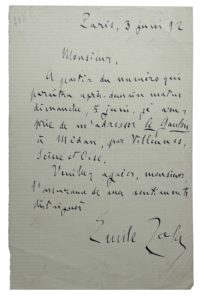 Paris, 3 juin 92
Monsieur,
A partir du numéro qui
paraîtra après-demain matin
dimanche, 5 juin, je vous
prie de m'adresser le Gaulois
à Médan, par Villennes,
Seine et Oise.
Veuillez agréer, monsieur
l'assurance de mes sentiments
distingués
Emile Zola